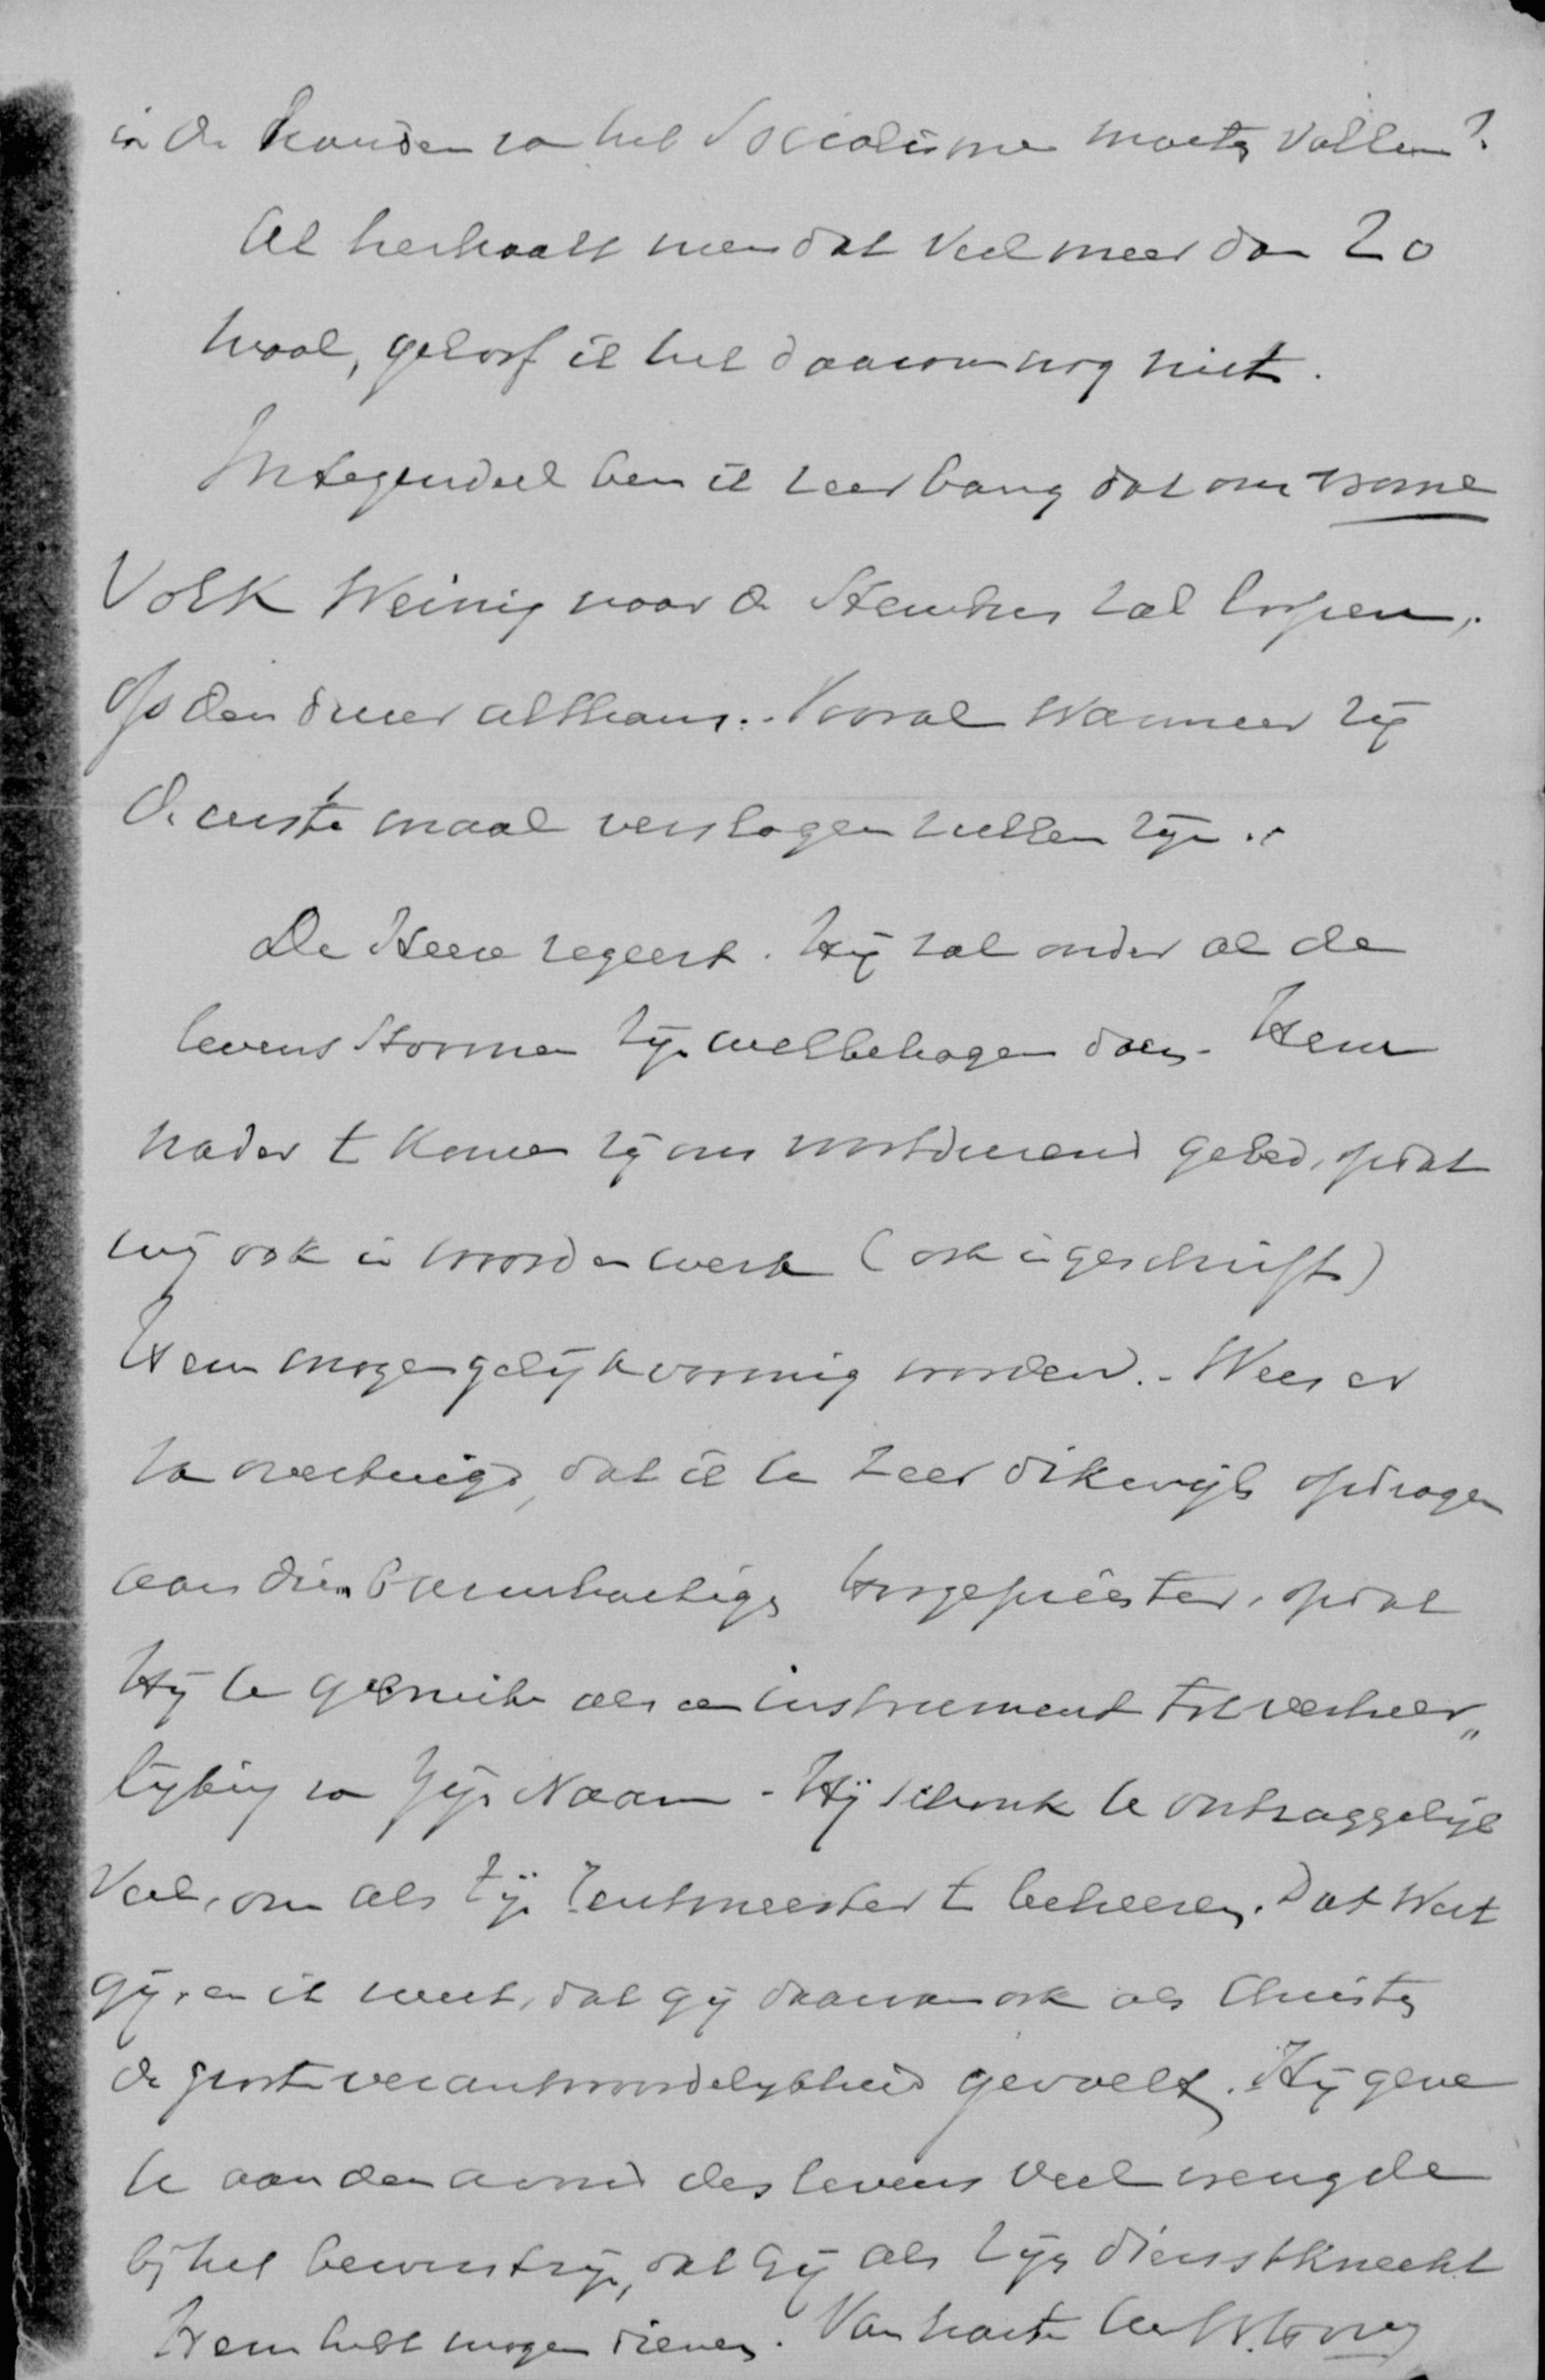 in de handen van het Socialisme moeten vallen?
Al herhaalt men dat veel meer dan 20
maal, geloof ik het daarom nog niet.
Integendeel ben ik zeer bang dat ons vrome
Volk Weinig naar de Stembus zal loopen,
op den duur althans. Vooral Wanneer zij
de eerste maal verslagen zullen zijn.
De Heere regeert. Hij zal onder al de
levens Stormen Zijn welbehagen doen. Hem
nader te komen zij ons voortdurend gebed, opdat
wij ook in woord en werk (ook in geschrift)
Hem mogen gelijkvormig worden. - Wees er
van overtuigd, dat ik U zeer dikwijls opdrage
aan dien barmhartigen Hoogepriester, opdat
Hij U gebruike als een instrument tot verheer„
lijking van Zijn Naam - Hij schonk U ontzaggelijk
Veel, om als Zijn rentmeester te beheeren. Dat Weet
gij, en ik weet, dat gij daarvan ook als Christen
de groote verantwoordelijkheid gevoelt. Hij geve
U aan den avond des levens Veel vreugde
bij het bewustzijn, dat Gij als Zijn dienstknecht
Hem hebt mogen dienen. Van harte